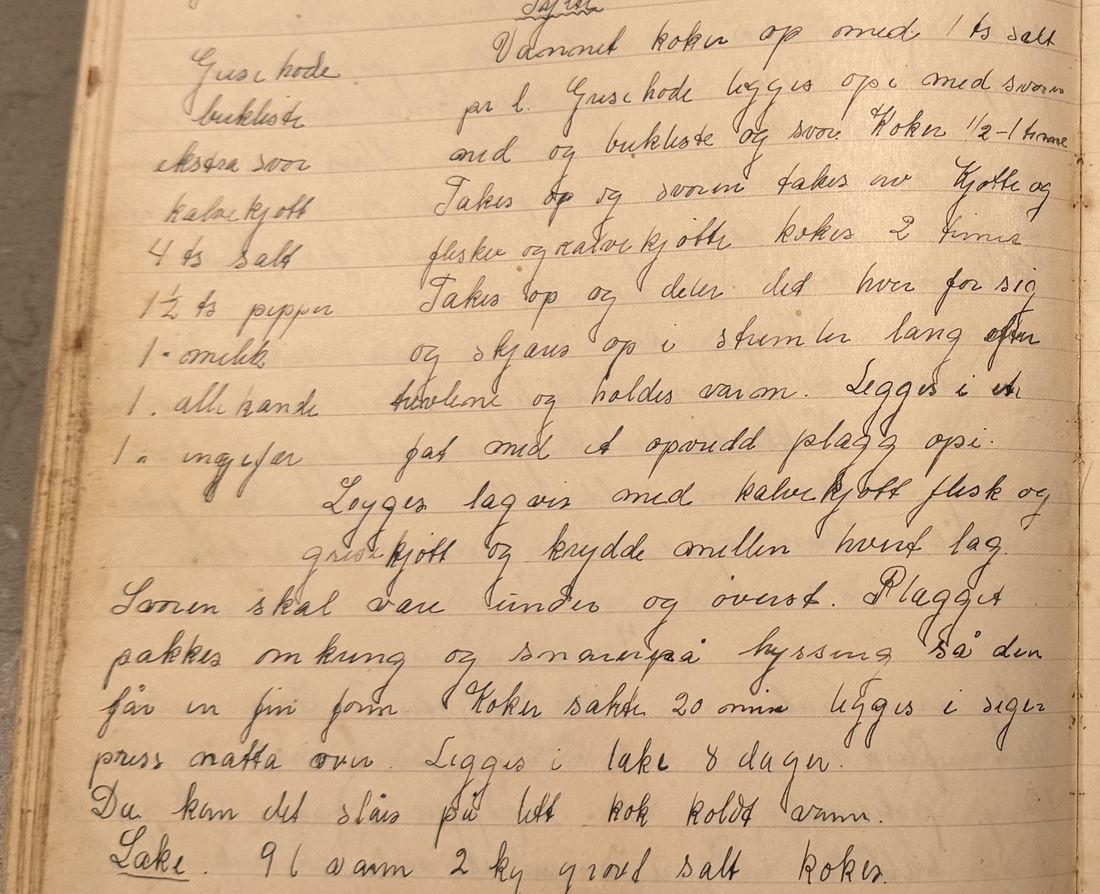 Sylte
Grisehode Vannet koker op med 1 ts salt
bukliste pr l. Grisehode legges opi med svoren
ekstra svor ned og bukliste og svor. Koker 1/2-1 time
kalvekjøtt Takes op og svoren takes av Kjøtte og
4 ts salt fleske og kalvekjøtte kokes 2 timer
1 1/2 ts pepper Takes op og deler det hver for sig
1 " nellik og skjæres op i strimler lang efter
1 " allehande trevlene og holdes varm. Legges i et
1 " ingefær fat med et opvridd plagg opi.
Legges lagvis med kalvekjøtt flesk og
grisekjøtt og krydde mellem hvert lag.
Svoren skal være under og øverst. Plagget
pakkes omkring og snøres på hyssing så den
får en fin form. Koker sakte 20 min legges i
press natta over. Legges i lake 8 dager.
Da kan det slåes på lett kok koldt vann.
Lake. 9 l vann 2 kg grovt salt kokes.